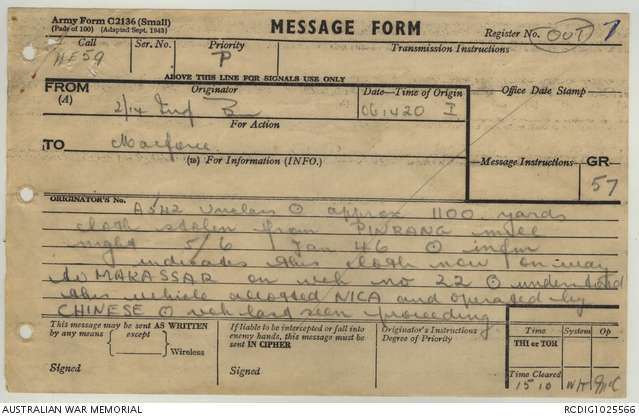 Army Form C2136 (Small)
(Pads of 100) (Adapted Sept. 1943)
MESSAGE FORM
Register No. OUT 7
Call
Ser. No.
Priority
Transmission Instructions
P
ABOVE THIS LINE FOR SIGNALS USE ONLY
FROM
(A)
Originator
Date—Time of Origin
Office Date Stamp
2/14 Inf Bn
061420 I
For Action
TO
Macforce
(W) For Information (INFO.)
Message Instructions
GR
57
ORIGINATOR'S No.
A542 Unclass ⊙ approx 1100 yards
cloth stolen from PINRANG mill
night 5/6 Jan 46 ⊙ infm
indicates this cloth now on way
to MAKASSAR on veh no 22 ⊙ understood
this vehicle allotted NICA and operated by
CHINESE ⊙ veh last seen proceeding
This message may be sent AS WRITTEN
by any means except
Wireless
Signed
If liable to be intercepted or fall into
enemy hands, this message must be
sent IN CIPHER
Signed
Originator's Instructions
Degree of Priority
Time
System
Op
THI or TOR
Time Cleared
1510
AUSTRALIAN WAR MEMORIAL
RCDIG1025566